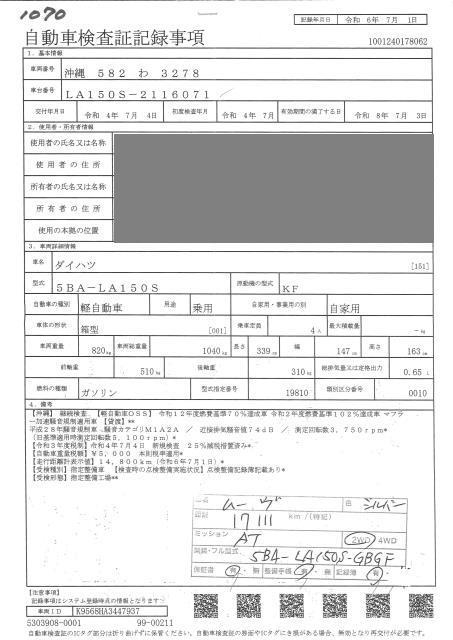 1070
記録年月日 令和 6年 7月 1日
自動車検査証記録事項
1001240178062
1．基本情報
車両番号 沖縄 582 わ 3278
車台番号 LA150S-2116071
交付年月日 令和 4年 7月 4日 初度検査年月 令和 4年 7月 有効期間の満了する日 令和 8年 7月 3日
2．使用者・所有者情報
使用者の氏名又は名称
使用者の住所
所有者の氏名又は名称
所有者の住所
使用の本拠の位置
3．車両詳細情報
車名 ダイハツ [151]
型式 5BA-LA150S 原動機の型式 KF
自動車の種別 軽自動車 用途 乗用 自家用・事業用の別 自家用
車体の形状 箱型 [001] 乗車定員 4人 最大積載量 -kg
車両重量 820kg 車両総重量 1040kg 長さ 339cm 幅 147cm 高さ 163cm
前軸重 510kg 後軸重 310kg 総排気量又は定格出力 0.65L
燃料の種類 ガソリン 型式指定番号 19810 類別区分番号 0010
4．備考
【沖縄】 継続検査 【軽自動車OSS】 令和12年度燃費基準70％達成車 令和2年度燃費基準102％達成車 マフラ
ー加速騒音規制適用車 【貸渡】**
平成28年騒音規制車 騒音カテゴリM1A2A ／ 近接排気騒音値74dB ／ 測定回転数3，750rpm*
(旧基準適用時測定回転数5，100rpm)*
【令和3年度税制】令和4年7月4日 新規検査 25％減税措置済み*
【自動車重量税額】￥5，000 本則税率適用*
【走行距離計表示値】14，800km（令和6年7月1日）*
【受検種別】指定整備車 【検査時の点検整備実施状況】点検整備記録簿記載あり*
【受検形態】指定整備工場**
車名 ムーヴ 色 シルバー
17111 km／(特記)
ミッション AT 2WD 4WD
類別・フル型式 5BA-LA150S-GBGF
保証書 有・無 整備手帳 有・無 記録簿 有・
【注意事項】
記録事項はシステム登録時点の情報となります
車両ID K9568HA3447937
5303908-0001 99-00211
自動車検査証のICタグ部分は折り曲げずに保管ください。自動車検査証の券面やICタグにき損がある場合、無効となり再交付が必要です。